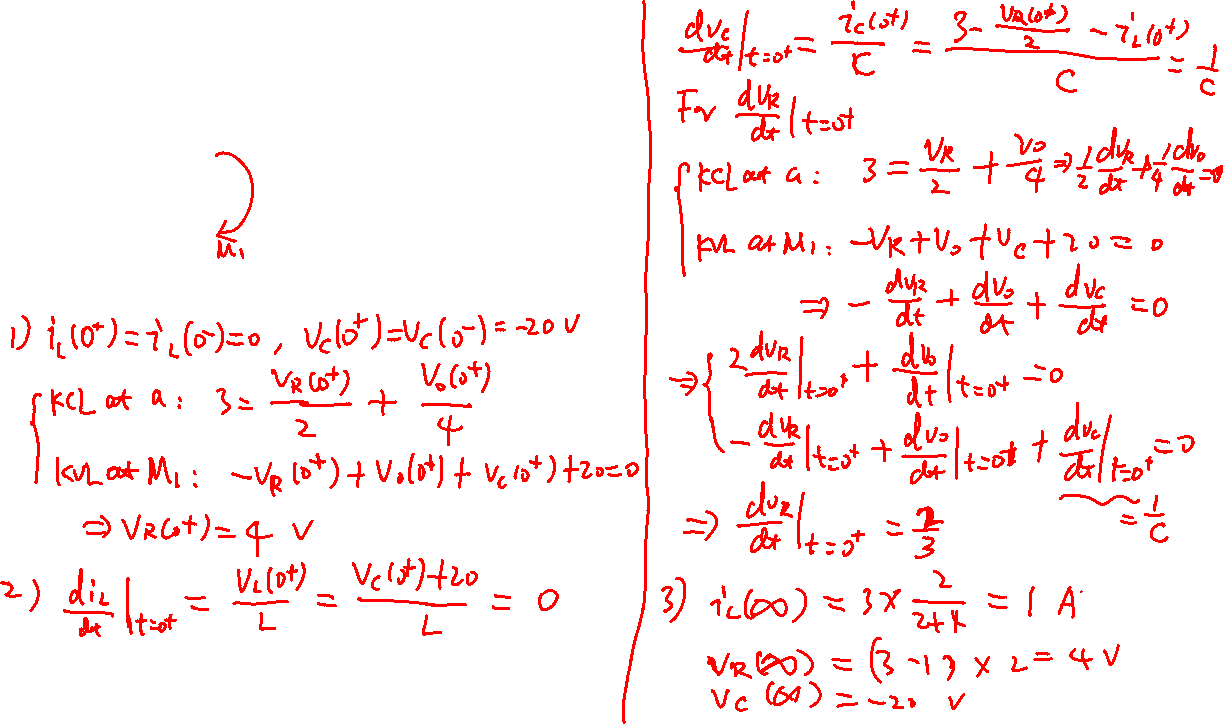 M₁
1) i_L(0⁺) = i_L(0⁻) = 0 , V_C(0⁺) = V_C(0⁻) = -20 V
KCL at a : 3 = V_R(0⁺)/2 + V_o(0⁺)/4
KVL at M₁ : -V_R(0⁺) + V_o(0⁺) + V_C(0⁺) + 20 = 0
⇒ V_R(0⁺) = 4 V
2) di_L/dt |t=0⁺ = V_L(0⁺)/L = (V_C(0⁺)+20)/L = 0
dv_C/dt |t=0⁺ = i_C(0⁺)/C = (3 - V_R(0⁺)/2 - i_L(0⁺))/C = 1/C
For dV_R/dt |t=0⁺
KCL at a : 3 = V_R/2 + V_o/4 ⇒ 1/2 dV_R/dt + 1/4 dV_o/dt = 0
KVL at M₁ : -V_R + V_o + V_C + 20 = 0
⇒ - dV_R/dt + dV_o/dt + dV_C/dt = 0
⇒ 2 dV_R/dt |t=0⁺ + dV_o/dt |t=0⁺ = 0
- dV_R/dt |t=0⁺ + dV_o/dt |t=0⁺ + dV_C/dt |t=0⁺ = 0
= 1/C
⇒ dV_R/dt |t=0⁺ = 2/3
3) i_L(∞) = 3 × 2/(2+4) = 1 A
V_R(∞) = (3-1) × 2 = 4 V
V_C(∞) = -20 V